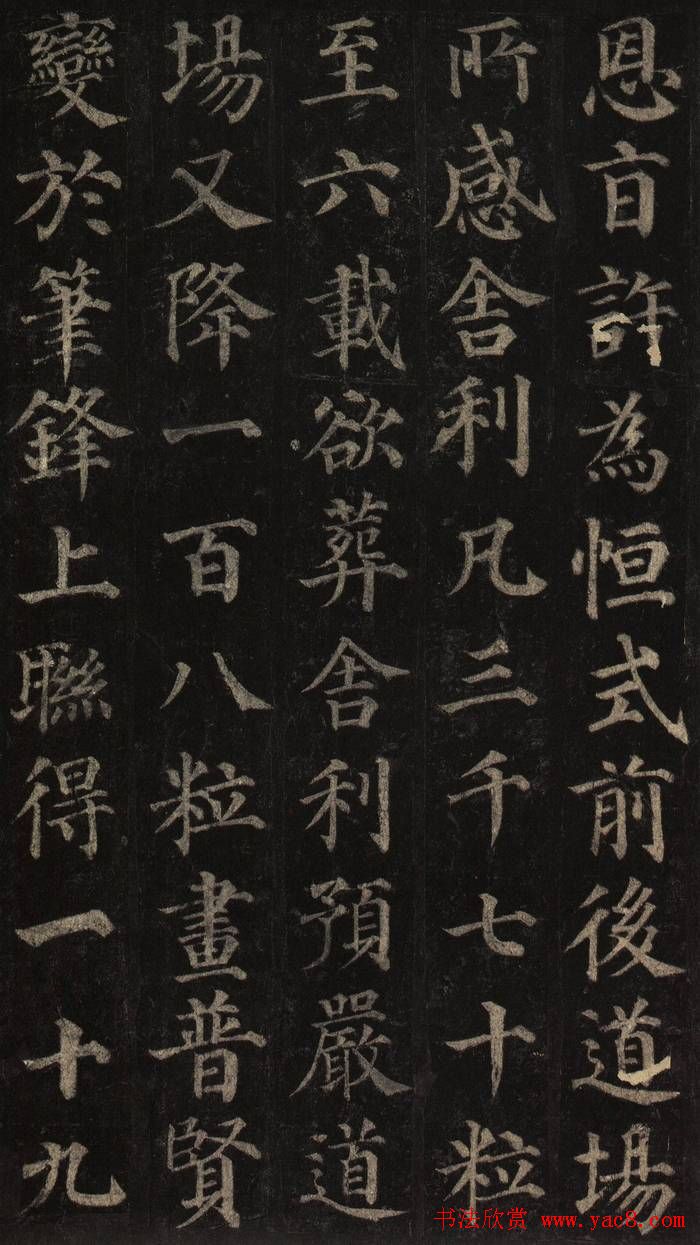 恩㫖許為恒式前後道場
所感舎利凡三千七十粒
至六載欲葬舎利預嚴道
場又降一百八粒畫普賢
變於筆鋒上聮得一十九
书法欣赏 www.yac8.com